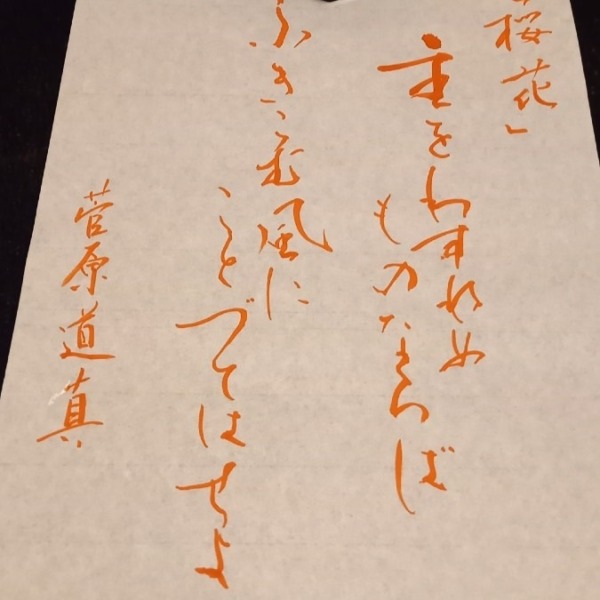 桜花」
主をわすれぬ
ものならば
ふきこむ風に
ことづてはせよ
菅原道真